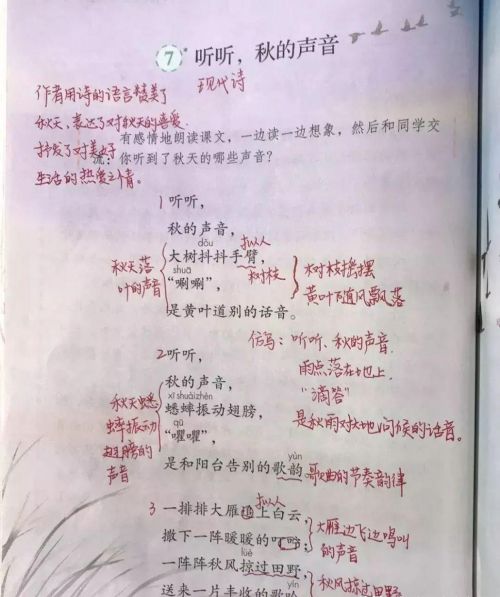 7* 听听，秋的声音
现代诗
作者用诗的语言赞美了
秋天、表达了对秋天的喜爱
抒发了对美好
生活的热爱之情。
有感情地朗读课文，一边读一边想象，然后和同学交
流：你听到了秋天的哪些声音？
1 听听，
秋的声音，
dǒu
拟人
大树抖抖手臂，
树枝
shuā
“唰唰”，
是黄叶道别的话音。
秋天落
叶的声音
树枝摇摆
黄叶随风飘落
仿写：听听、秋的声音
雨点落在地上
“滴答”
是秋雨对大地问候的话音。
2 听听，
秋的声音，
xī shuài zhèn
蟋蟀振动翅膀，
qú
“㘗㘗”，
yùn
是和阳台告别的歌韵。
歌曲的节奏韵律
秋天蟋
蟀振动
翅膀的
声音
拟人
3 一排排大雁追上白云，
撒下一阵暖暖的叮咛；
大雁边飞边鸣叫
的声音
lüè
一阵阵秋风掠过田野，
yín
送来一片丰收的歌吟
秋风掠过田野